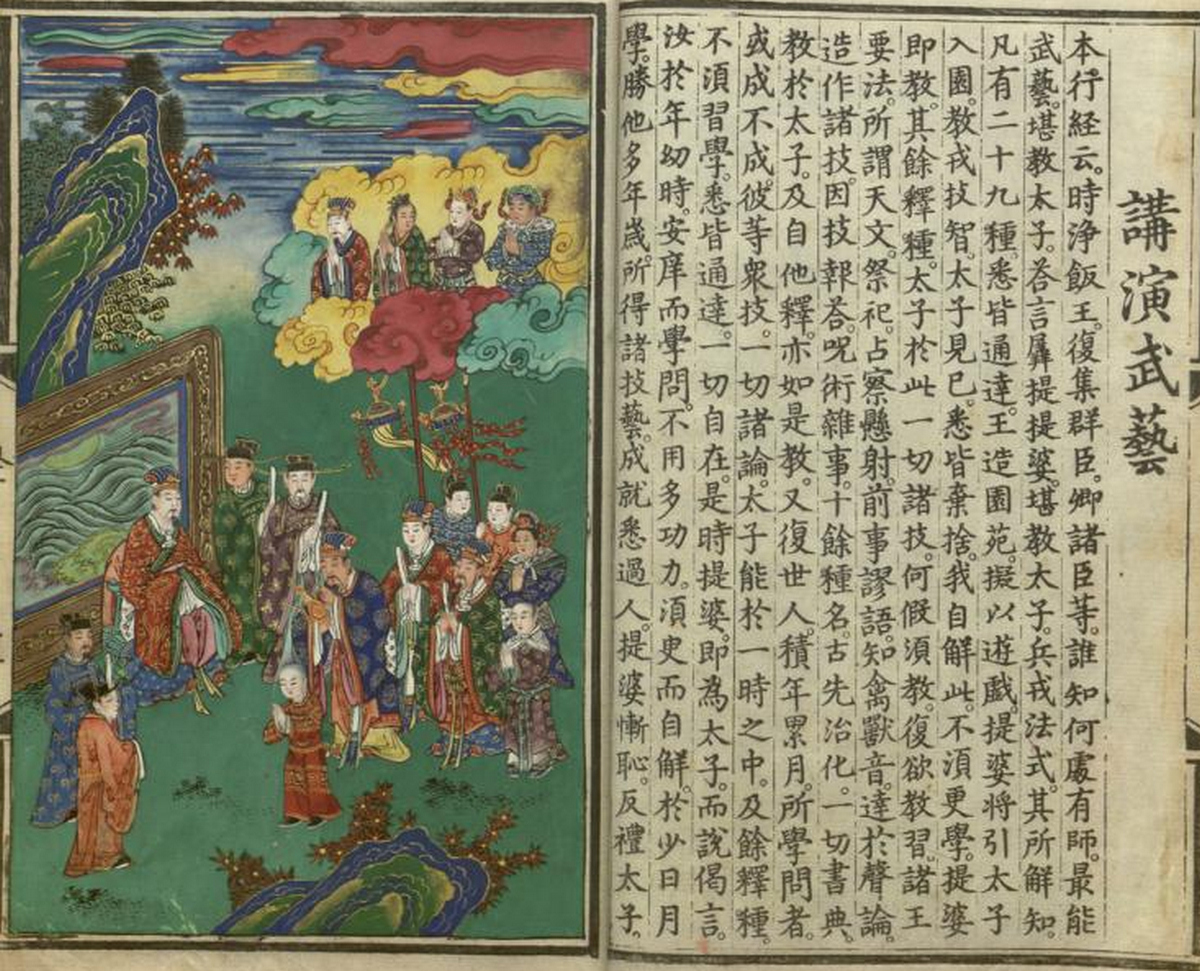 講演武藝
本行経云。時浄飯王。復集群臣。卿諸臣等。誰知何處有師。最能
武藝。堪教太子。荅言羼提提婆。堪教太子。兵戎法式。其所解知。
凡有二十九種。悉皆通達。王造園苑。擬以遊戲。提婆將引太子
入園。教戎技智。太子見已。悉皆棄捨。我自解此。不湏更學。提婆
即教。其餘釋種。太子於此一切諸技。何假湏教。復欲教習。諸王
要法。所謂天文。祭祀。占察。懸射。前事謬語。知禽獸音。達於聲論。
造作諸技。因技報荅。呪術雜事。十餘種名。古先治化。一切書典。
教於太子。及自他釋。亦如是教。又復世人。積年累月。所學問者。
或成不成。彼等衆技。一切諸論。太子能於一時之中。及餘釋種。
不湏習學。悉皆通達。一切自在。是時提婆。即為太子。而說偈言。
汝於年幼時。安庠而學問。不用多功力。湏更而自解。於少日月
學。勝他多年歲。所得諸技藝。成就悉過人。提婆慚恥。反禮太子。